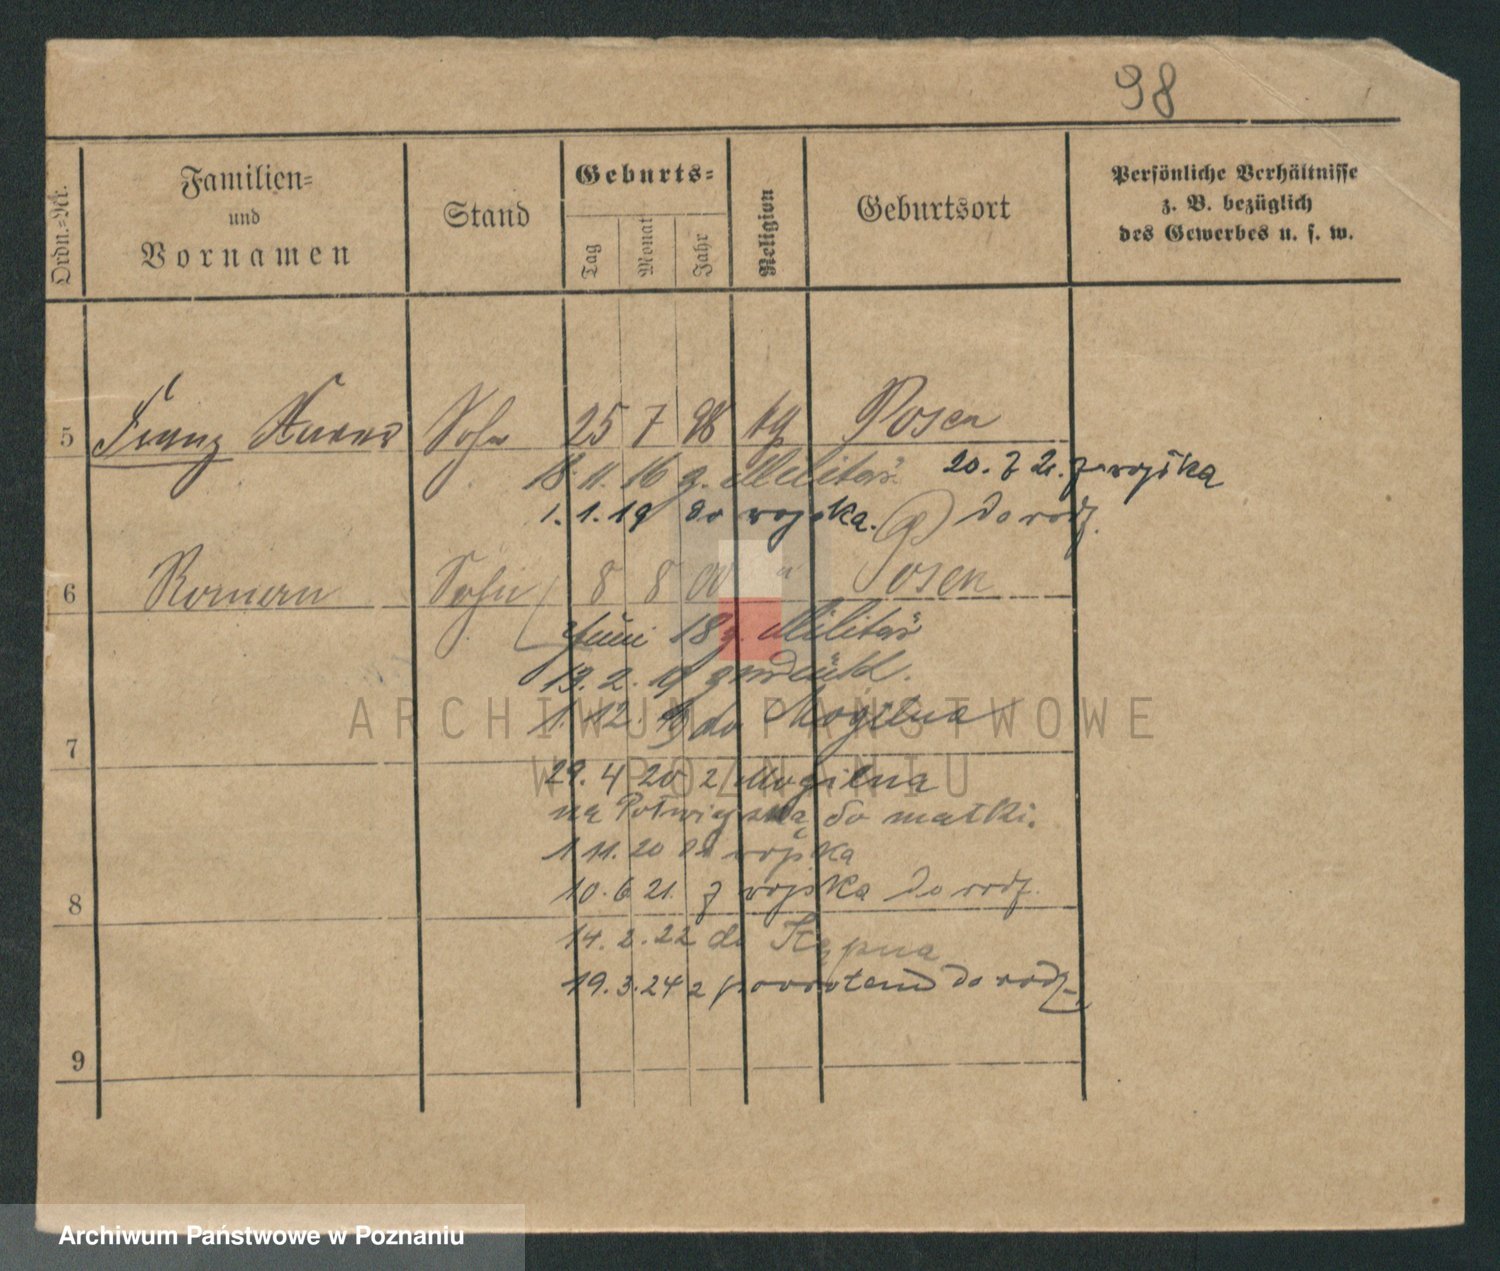 98
Ordn.-Nr.
Familien-
und
Vornamen
Stand
Geburts-
Tag
Monat
Jahr
Religion
Geburtsort
Persönliche Verhältnisse
z. B. bezüglich
des Gewerbes u. s. w.
5 Franz Sohn 25 7 98 kg Posen
18. 11. 16 z. Militär 20. 2. z wojska
1. 1. 19 do wojska. do rodz.
6 Roman Sohn 8 8 00 " Posen
Juni 18 z. Militär
19. 2. 19 zurück.
1. 12. 19 do Mogilna
7
29. 4 20 z Mogilna
na do matki.
1 11. 20 do wojska
10. 6 21. z wojska do rodz.
8
14. 2. 22 do Kępna
19. 3. 24 z powrotem do rodz.
9
ARCHIWUM PAŃSTWOWE
W POZNANIU
Archiwum Państwowe w Poznaniu